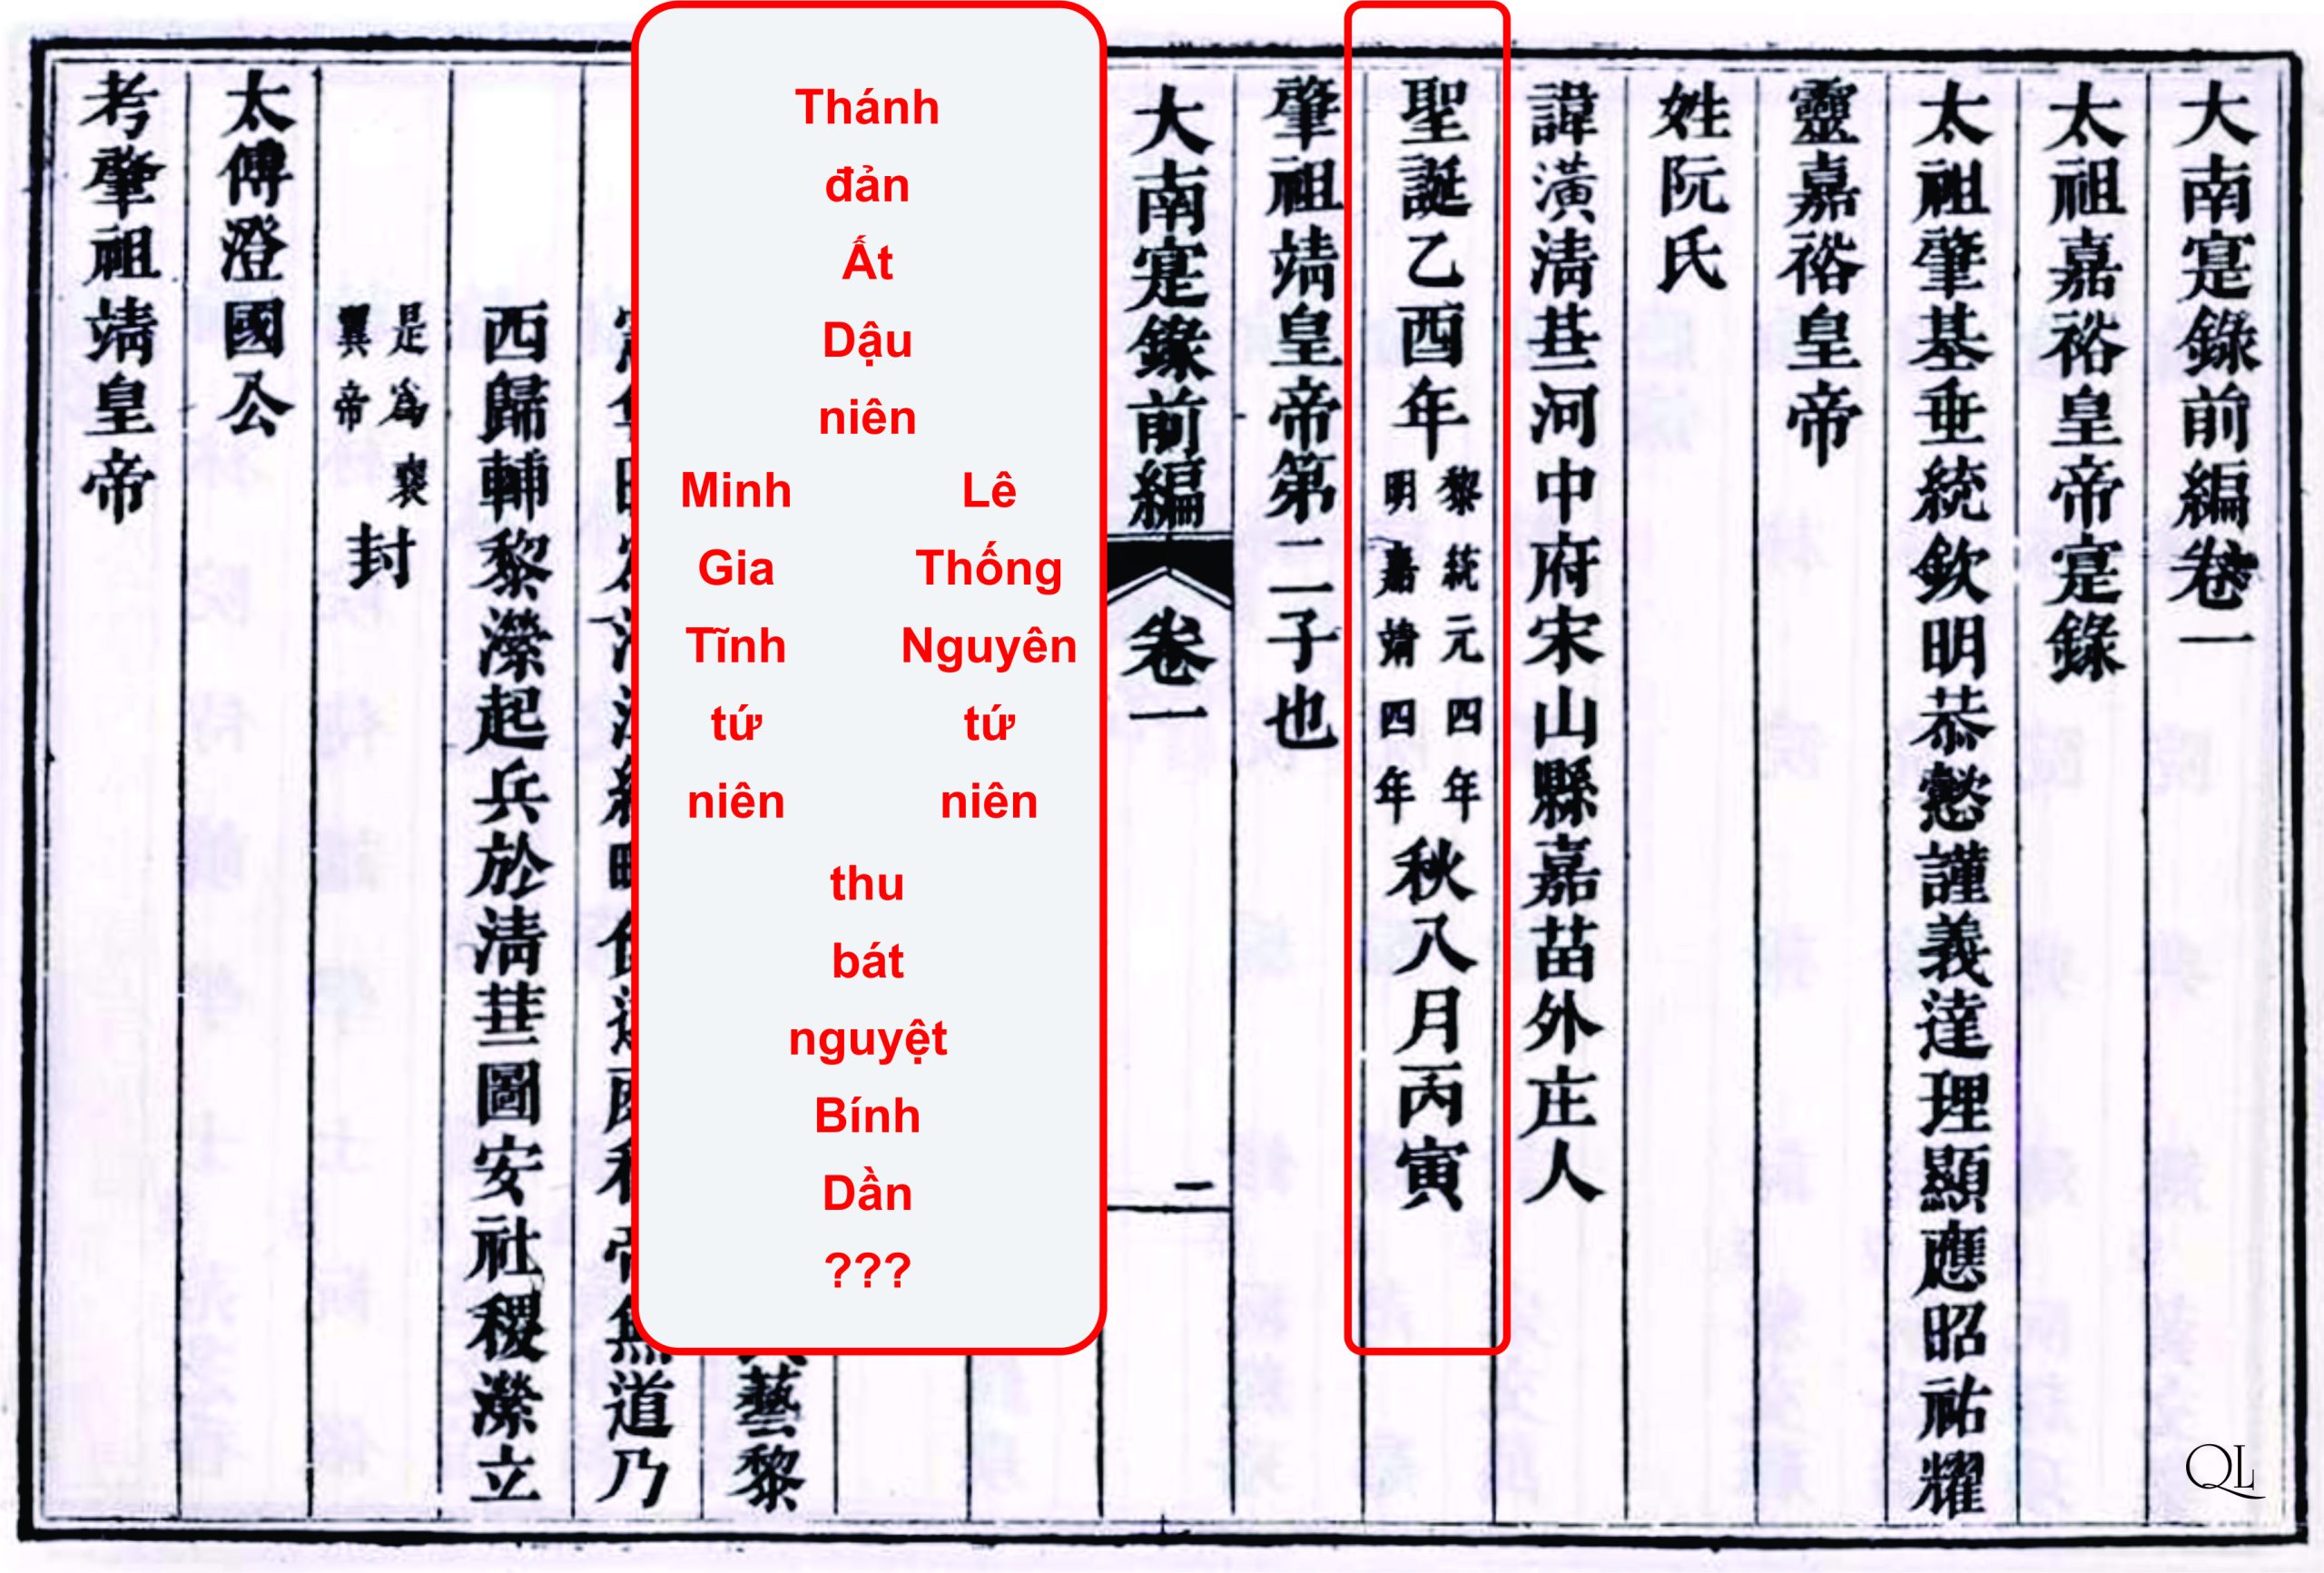 大南寔錄前編卷一
太祖嘉裕皇帝寔錄
太祖肇基垂統欽明恭懿謹義達理顯應昭祐耀
靈嘉裕皇帝
姓阮氏
諱潢淸𦬒河中府宋山縣嘉苗外庄人
聖誕乙酉年黎統元四年明嘉靖四年秋八月丙寅
肇祖靖皇帝第二子也
大南寔錄前編 卷一 二
Thánh
đản
Ất
Dậu
niên
Minh Lê
Gia Thống
Tĩnh Nguyên
tứ tứ
niên niên
thu
bát
nguyệt
Bính
Dần
???
藝黎
無道乃
西歸輔黎濴起兵於淸𦬒圖安社稷濴立
是爲襄翼帝封
太傅澄國公
考肇祖靖皇帝
QL